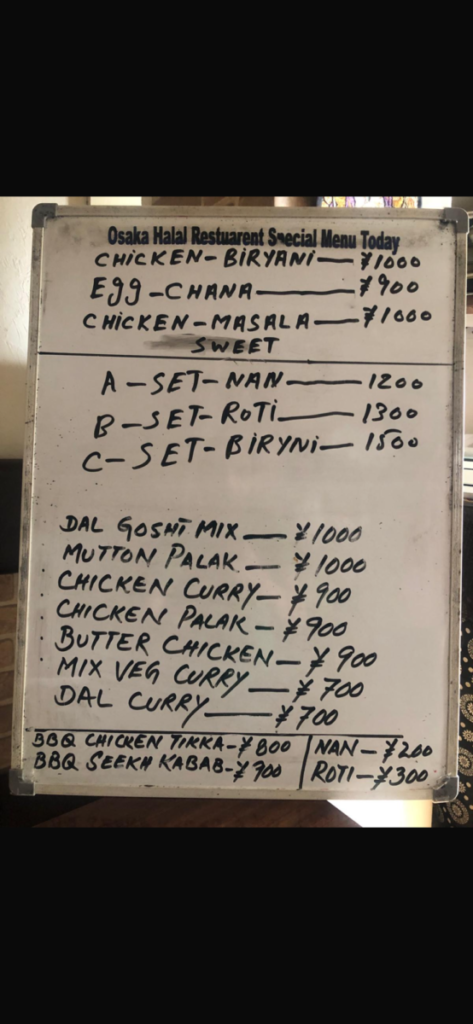 Osaka Halal Restuarent Special Menu Today
CHICKEN-BIRYANI—¥1000
Egg-CHANA—¥900
CHICKEN-MASALA—¥1000
SWEET
A-SET-NAN—1200
B-SET-ROTI—1300
C-SET-BIRYNI—1500
DAL GOSHT MIX—¥1000
MUTTON PALAK—¥1000
CHICKEN CURRY—¥900
CHICKEN PALAK-¥900
BUTTER CHICKEN—¥900
MIX VEG CURRY—¥700
DAL CURRY—¥700
BBQ CHICKEN TIKKA-¥800
BBQ SEEKH KABAB-¥700
NAN-¥200
ROTI-¥300